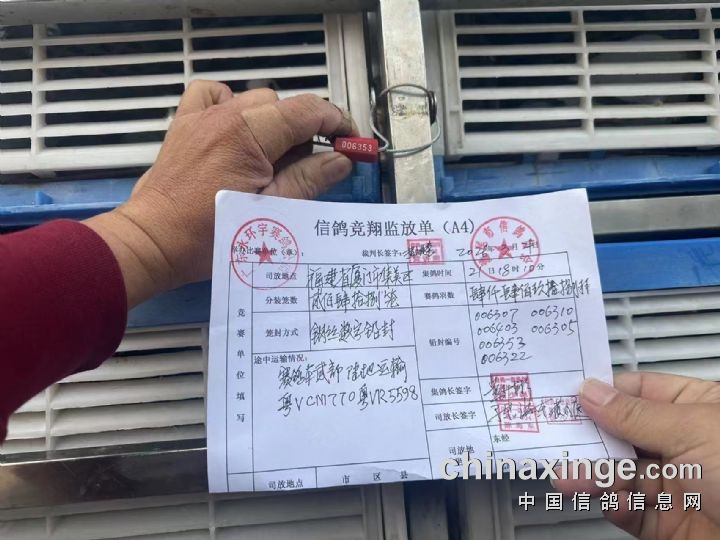 006353
信鸽竞翔监放单 (A4)
承办比赛单位（章）： 裁判长签字：
司放地点 福建省厦门市集美区 集鸽时间 21日18时10分
分装笼数 贰佰肆拾捌笼 赛鸽羽数
笼封方式 钢丝数字铅封 铅封编号 006307 006310
006403 006305
006353
006322
竞赛单位填写
途中运输情况：
赛鸽车贰部 陆地运输
粤VCM770粤VR5598
集鸽长签字
司放长签字
司放地 东经
司放地点 市 区 县
chinaxinge.com
中国信鸽信息网